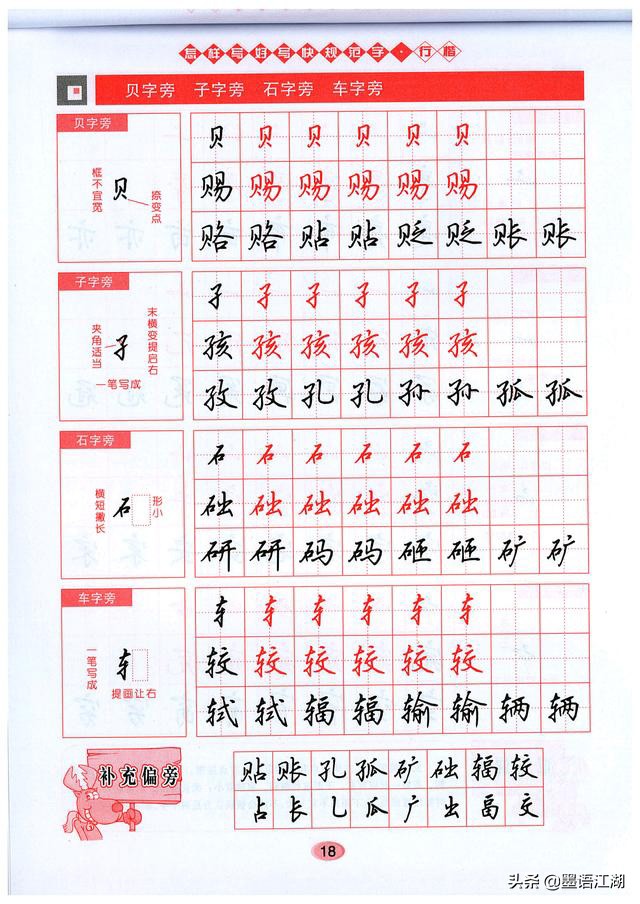 怎样写好写快规范字·行楷
贝字旁 子字旁 石字旁 车字旁
贝字旁
框不宜宽
贝
捺变点
贝 贝 贝 贝 贝 贝
赐 赐 赐 赐 赐 赐
赂 赂 贴 贴 贬 贬 账 账
子字旁
夹角适当
子
末横变提启右
一笔写成
子 子 子 子 子 子
孩 孩 孩 孩 孩 孩
孜 孜 孔 孔 孙 孙 孤 孤
石字旁
横短撇长
石
形小
石 石 石 石 石 石
础 础 础 础 础 础
研 研 码 码 砸 砸 矿 矿
车字旁
一笔写成
车
提画让右
车 车 车 车 车 车
较 较 较 较 较 较
轼 轼 辐 辐 输 输 辆 辆
补充偏旁
贴 账 孔 孤 矿 础 辐 较
占 长 乚 瓜 广 出 畐 交
18
头条 @墨语江湖